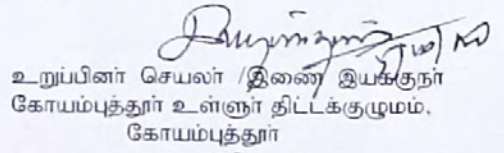 உறுப்பினர் செயலர் /இணை இயக்குநர்
கோயம்புத்தூர் உள்ளுர் திட்டக்குழுமம்,
கோயம்புத்தூர்